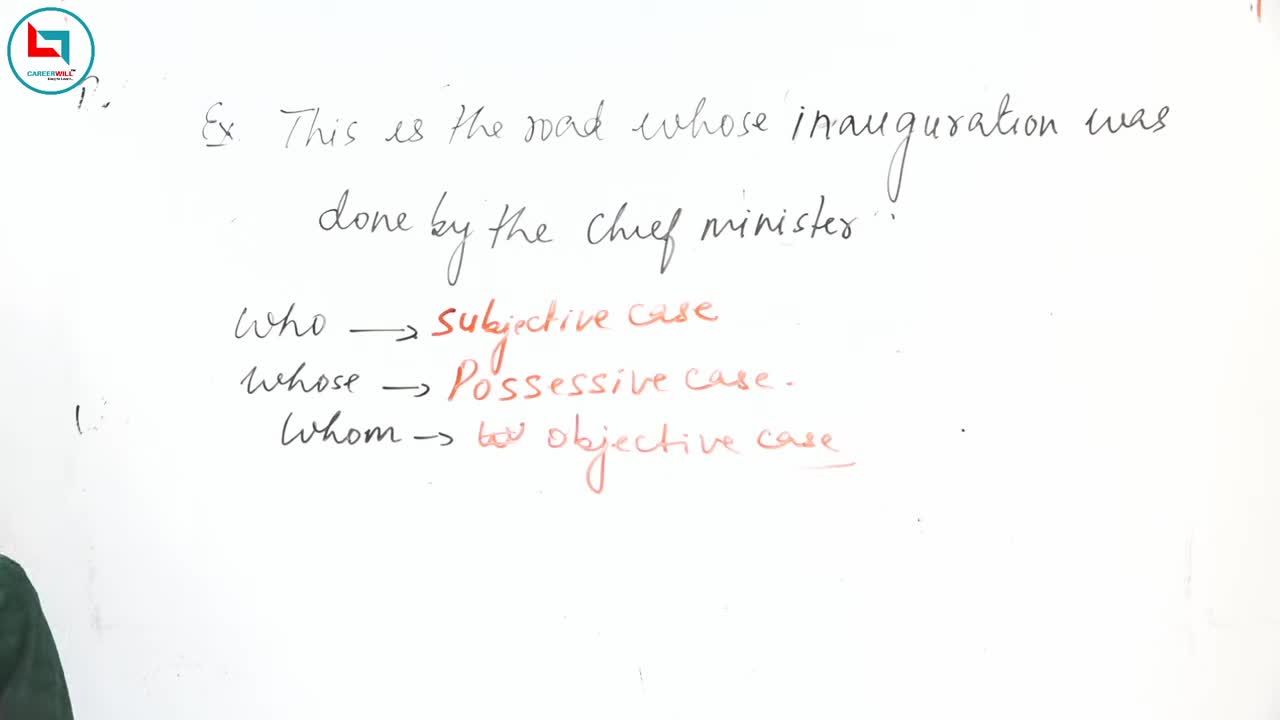 CAREERWILL™
Ex. This is the road whose inauguration was
done by the Chief minister
who → subjective case
whose → Possessive case.
Whom → objective case